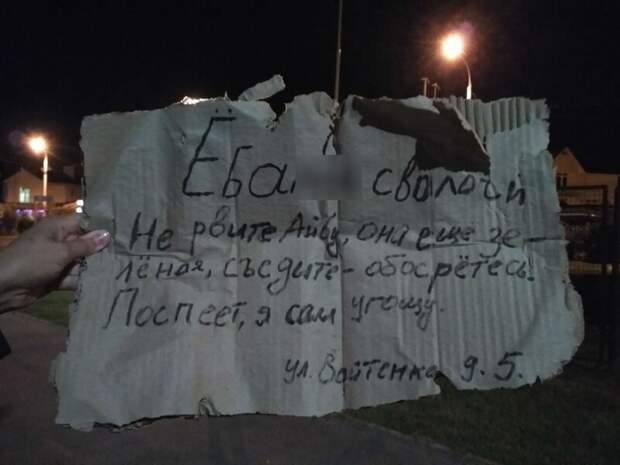 Ёба сволочи
Не рвите Айву, она еще зе-
лёная, съедите - обосрётесь!
Поспеет, я сам угощу.
ул. Войтенко д. 5.